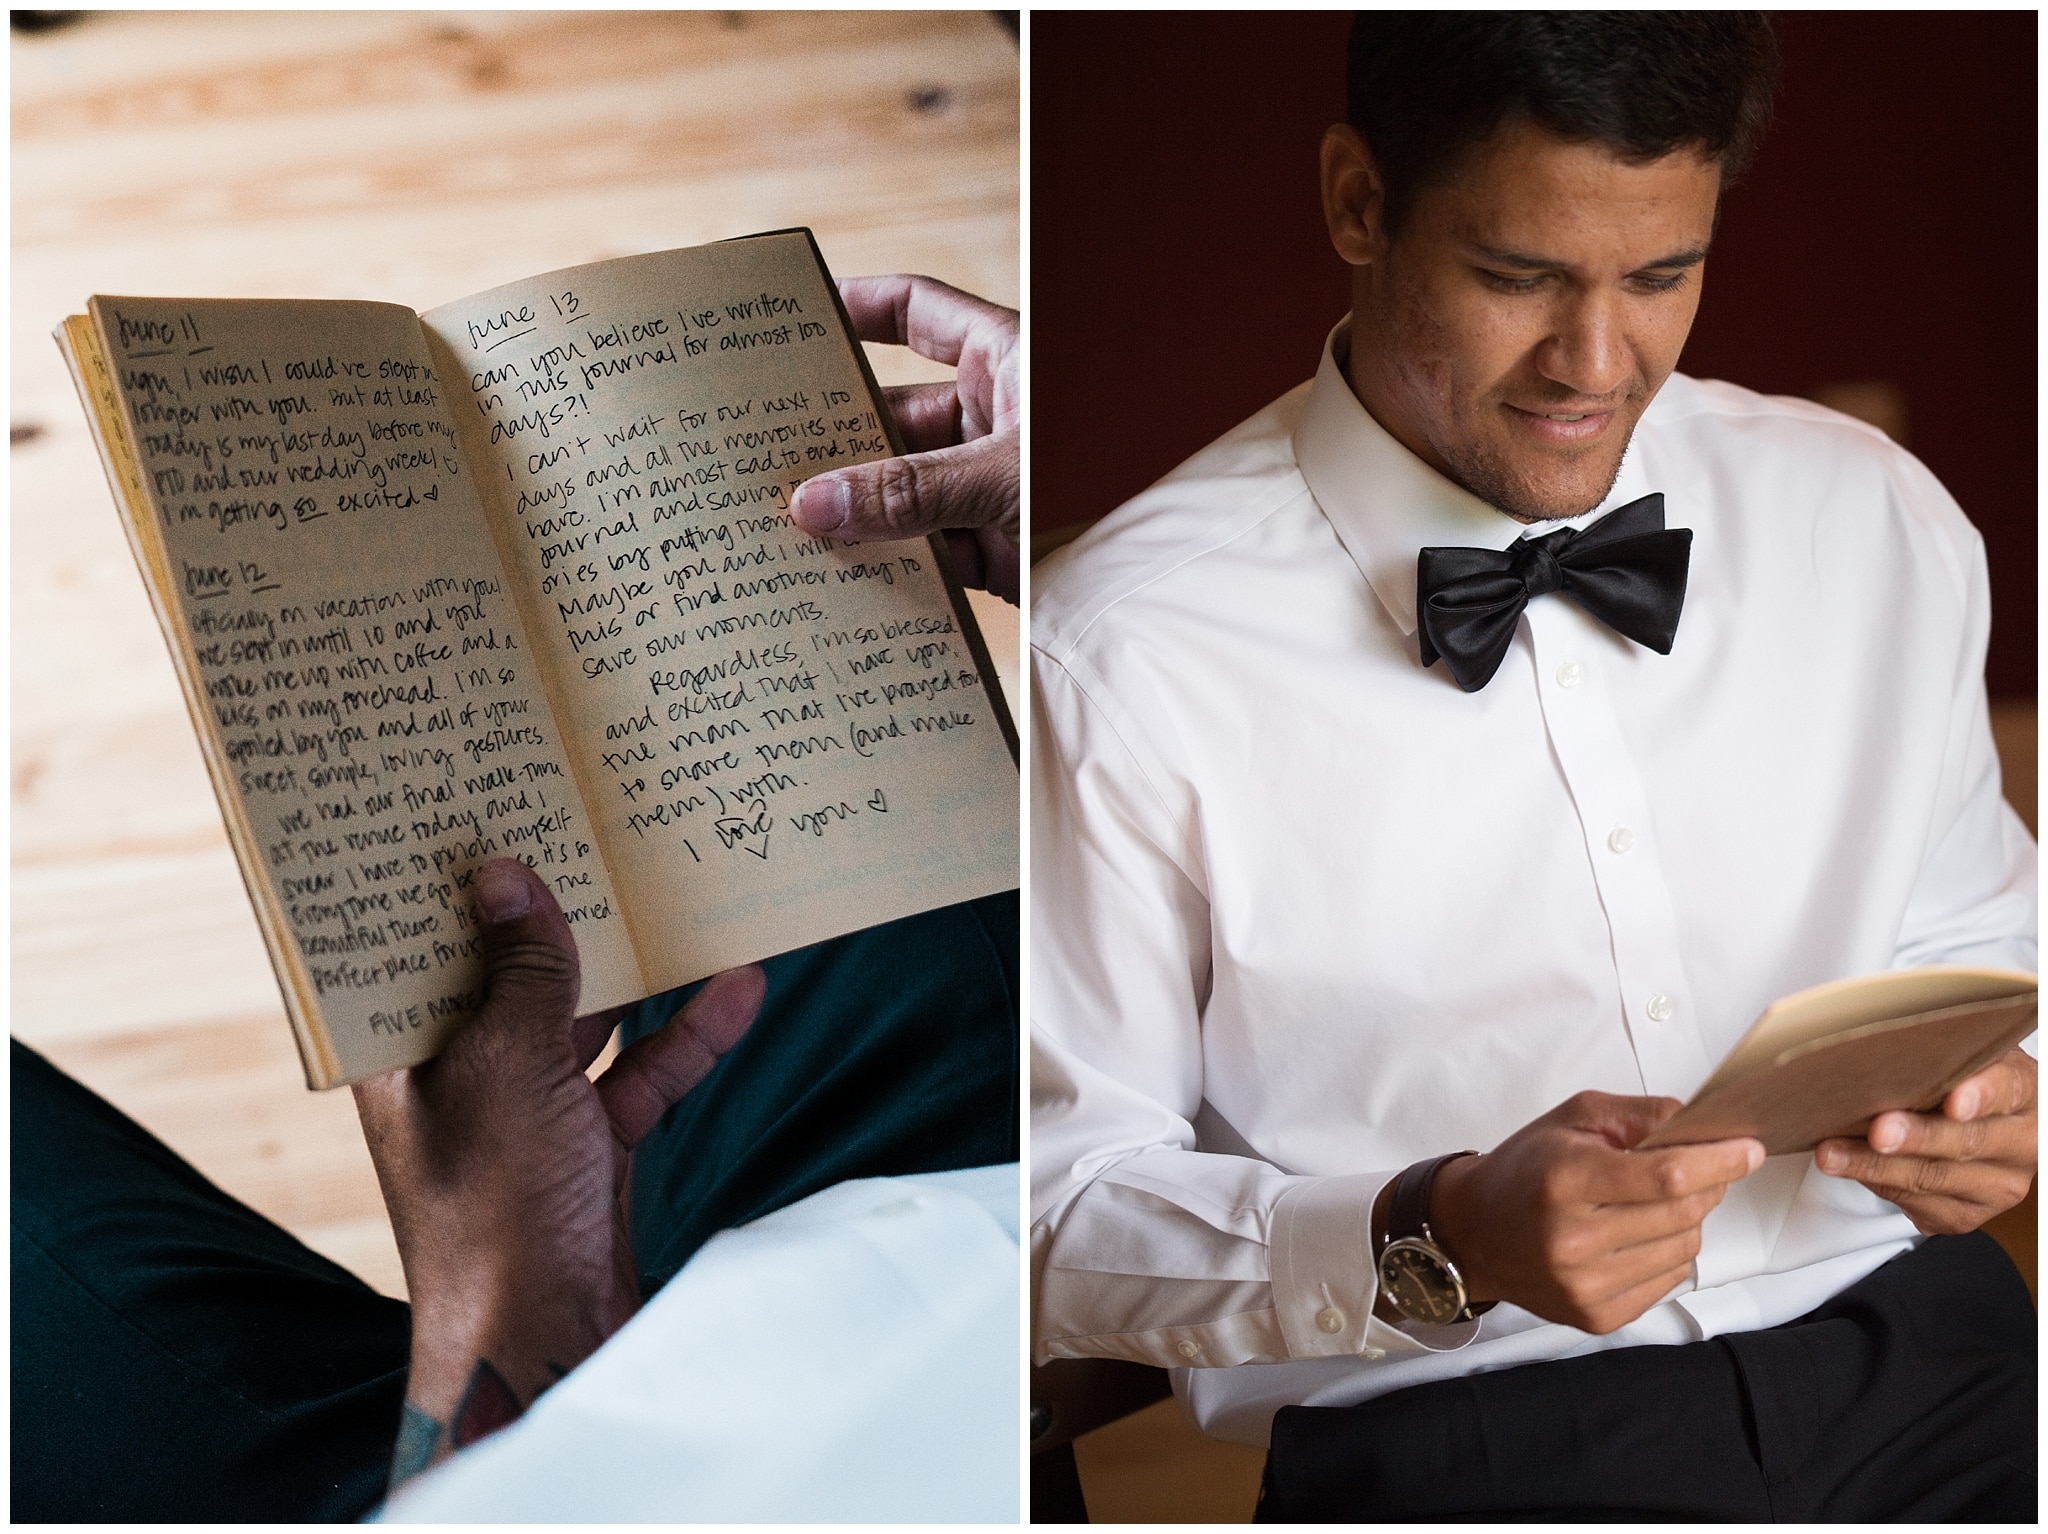 June 11
ugh, I wish I could've slept in
longer with you. But at least
today is my last day before my
PTO and our wedding week! :)
I'm getting so excited ♡
June 12
officially on vacation with you!
we slept in until 10 and you
woke me up with coffee and a
kiss on my forehead. I'm so
spoiled by you and all of your
sweet, simple, loving gestures.
we had our final walk-thru
at the venue today and I
swear I have to pinch myself
everytime we go it's so
beautiful there. The
perfect place for us
FIVE MORE
June 13
can you believe I've written
in this journal for almost 100
days?!
I can't wait for our next 100
days and all the memories we'll
have. I'm almost sad to end this
journal and saving
ories by putting them
Maybe you and I will
this or find another way to
save our moments.
Regardless, I'm so blessed
and excited that I have you,
the man that I've prayed for
to share them (and make
them) with.
I love you ♡